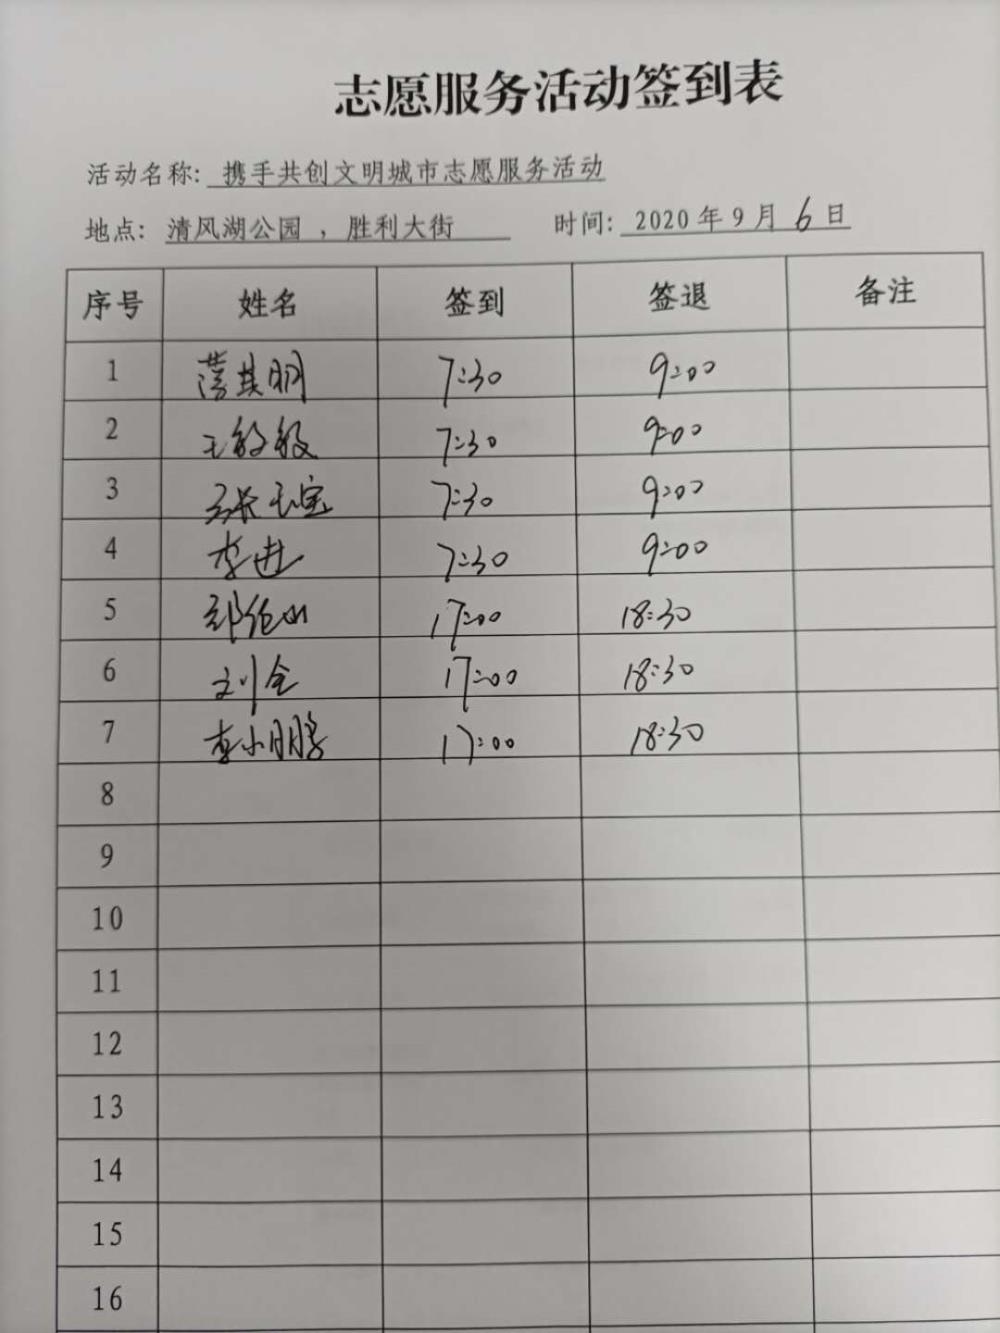 志愿服务活动签到表
活动名称: 携手共创文明城市志愿服务活动
地点: 清风湖公园 ，胜利大街 时间: 2020 年 9 月 6 日
序号 姓名 签到 签退 备注
1 其明 7:30 9:00
2 王敏敏 7:30 9:00
3 张玉宝 7:30 9:00
4 李进 7:30 9:00
5 17:00 18:30
6 刘全 17:00 18:30
7 李小鹏 17:00 18:30
8
9
10
11
12
13
14
15
16